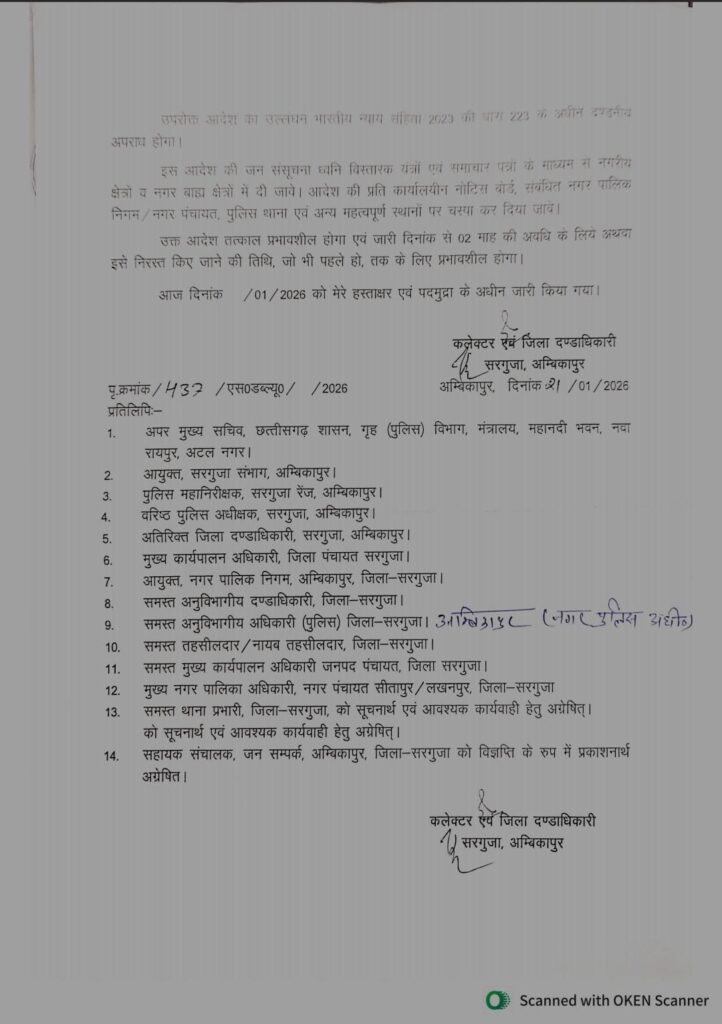 उपरोक्त आदेश का उल्लंघन भारतीय न्याय संहिता 2023 की धारा 223 के अधीन दण्डनीय
अपराध होगा।
इस आदेश की जन संसूचना ध्वनि विस्तारक यंत्रों एवं समाचार पत्रों के माध्यम से नगरीय
क्षेत्रों व नगर बाह्य क्षेत्रों में दी जावे। आदेश की प्रति कार्यालयीन नोटिस बोर्ड, संबंधित नगर पालिक
निगम/नगर पंचायत, पुलिस थाना एवं अन्य महत्वपूर्ण स्थानों पर चस्पा कर दिया जाव।
उक्त आदेश तत्काल प्रभावशील होगा एवं जारी दिनांक से 02 माह की अवधि के लिये अथवा
इसे निरस्त किए जाने की तिथि, जो भी पहले हो, तक के लिए प्रभावशील होगा।
आज दिनांक /01/2026 को मेरे हस्ताक्षर एवं पदमुद्रा के अधीन जारी किया गया।
कलेक्टर एवं जिला दण्डाधिकारी
सरगुजा, अम्बिकापुर
पृ.क्रमांक/437/एस0डब्ल्यू0/ /2026 अम्बिकापुर, दिनांक 21/01/2026
प्रतिलिपिः–
1. अपर मुख्य सचिव, छत्तीसगढ़ शासन, गृह (पुलिस) विभाग, मंत्रालय, महानदी भवन, नवा
रायपुर, अटल नगर।
2. आयुक्त, सरगुजा संभाग, अम्बिकापुर।
3. पुलिस महानिरीक्षक, सरगुजा रेंज, अम्बिकापुर।
4. वरिष्ठ पुलिस अधीक्षक, सरगुजा, अम्बिकापुर।
5. अतिरिक्त जिला दण्डाधिकारी, सरगुजा, अम्बिकापुर।
6. मुख्य कार्यपालन अधिकारी, जिला पंचायत सरगुजा।
7. आयुक्त, नगर पालिक निगम, अम्बिकापुर, जिला–सरगुजा।
8. समस्त अनुविभागीय दण्डाधिकारी, जिला–सरगुजा।
9. समस्त अनुविभागीय अधिकारी (पुलिस) जिला–सरगुजा। अम्बिकापुर (नगर पुलिस
10. समस्त तहसीलदार/नायब तहसीलदार, जिला–सरगुजा।
11. समस्त मुख्य कार्यपालन अधिकारी जनपद पंचायत, जिला सरगुजा।
12. मुख्य नगर पालिका अधिकारी, नगर पंचायत सीतापुर/लखनपुर, जिला–सरगुजा
13. समस्त थाना प्रभारी, जिला–सरगुजा, को सूचनार्थ एवं आवश्यक कार्यवाही हेतु अग्रेषित्।
को सूचनार्थ एवं आवश्यक कार्यवाही हेतु अग्रेषित्।
14. सहायक संचालक, जन सम्पर्क, अम्बिकापुर, जिला–सरगुजा को विज्ञप्ति के रुप में प्रकाशनार्थ
अग्रेषित।
कलेक्टर एवं जिला दण्डाधिकारी
सरगुजा, अम्बिकापुर
Scanned with OKEN Scanner